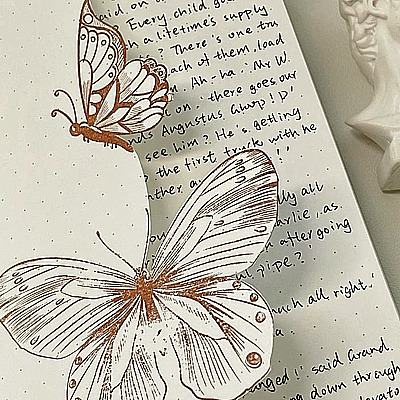 aid on a
Every child go
h a lifetime's supply
? There's one tru
each of them, load
Ah-ha. Mr W.
on. there goes our
Augustus Gloop! D'
see him? He's getting
the first truck with he
ther a
!'
lly all
arlie, as
after going
pipe?'
uch all right.'
a.
anged!' said Grand
ng down through